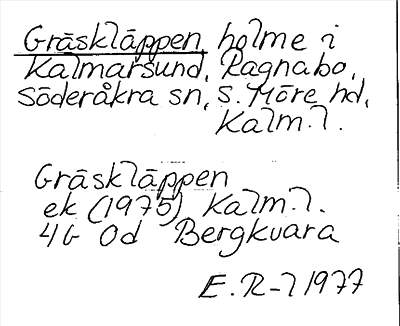 Gräskläppen, holme i
Kalmarsund, Ragnabo,
Söderåkra sn, S. Möre hd,
Kalm.l.
Gräskläppen
ek (1975) Kalm.l.
4G 0d Bergkvara
E.R-l 1977